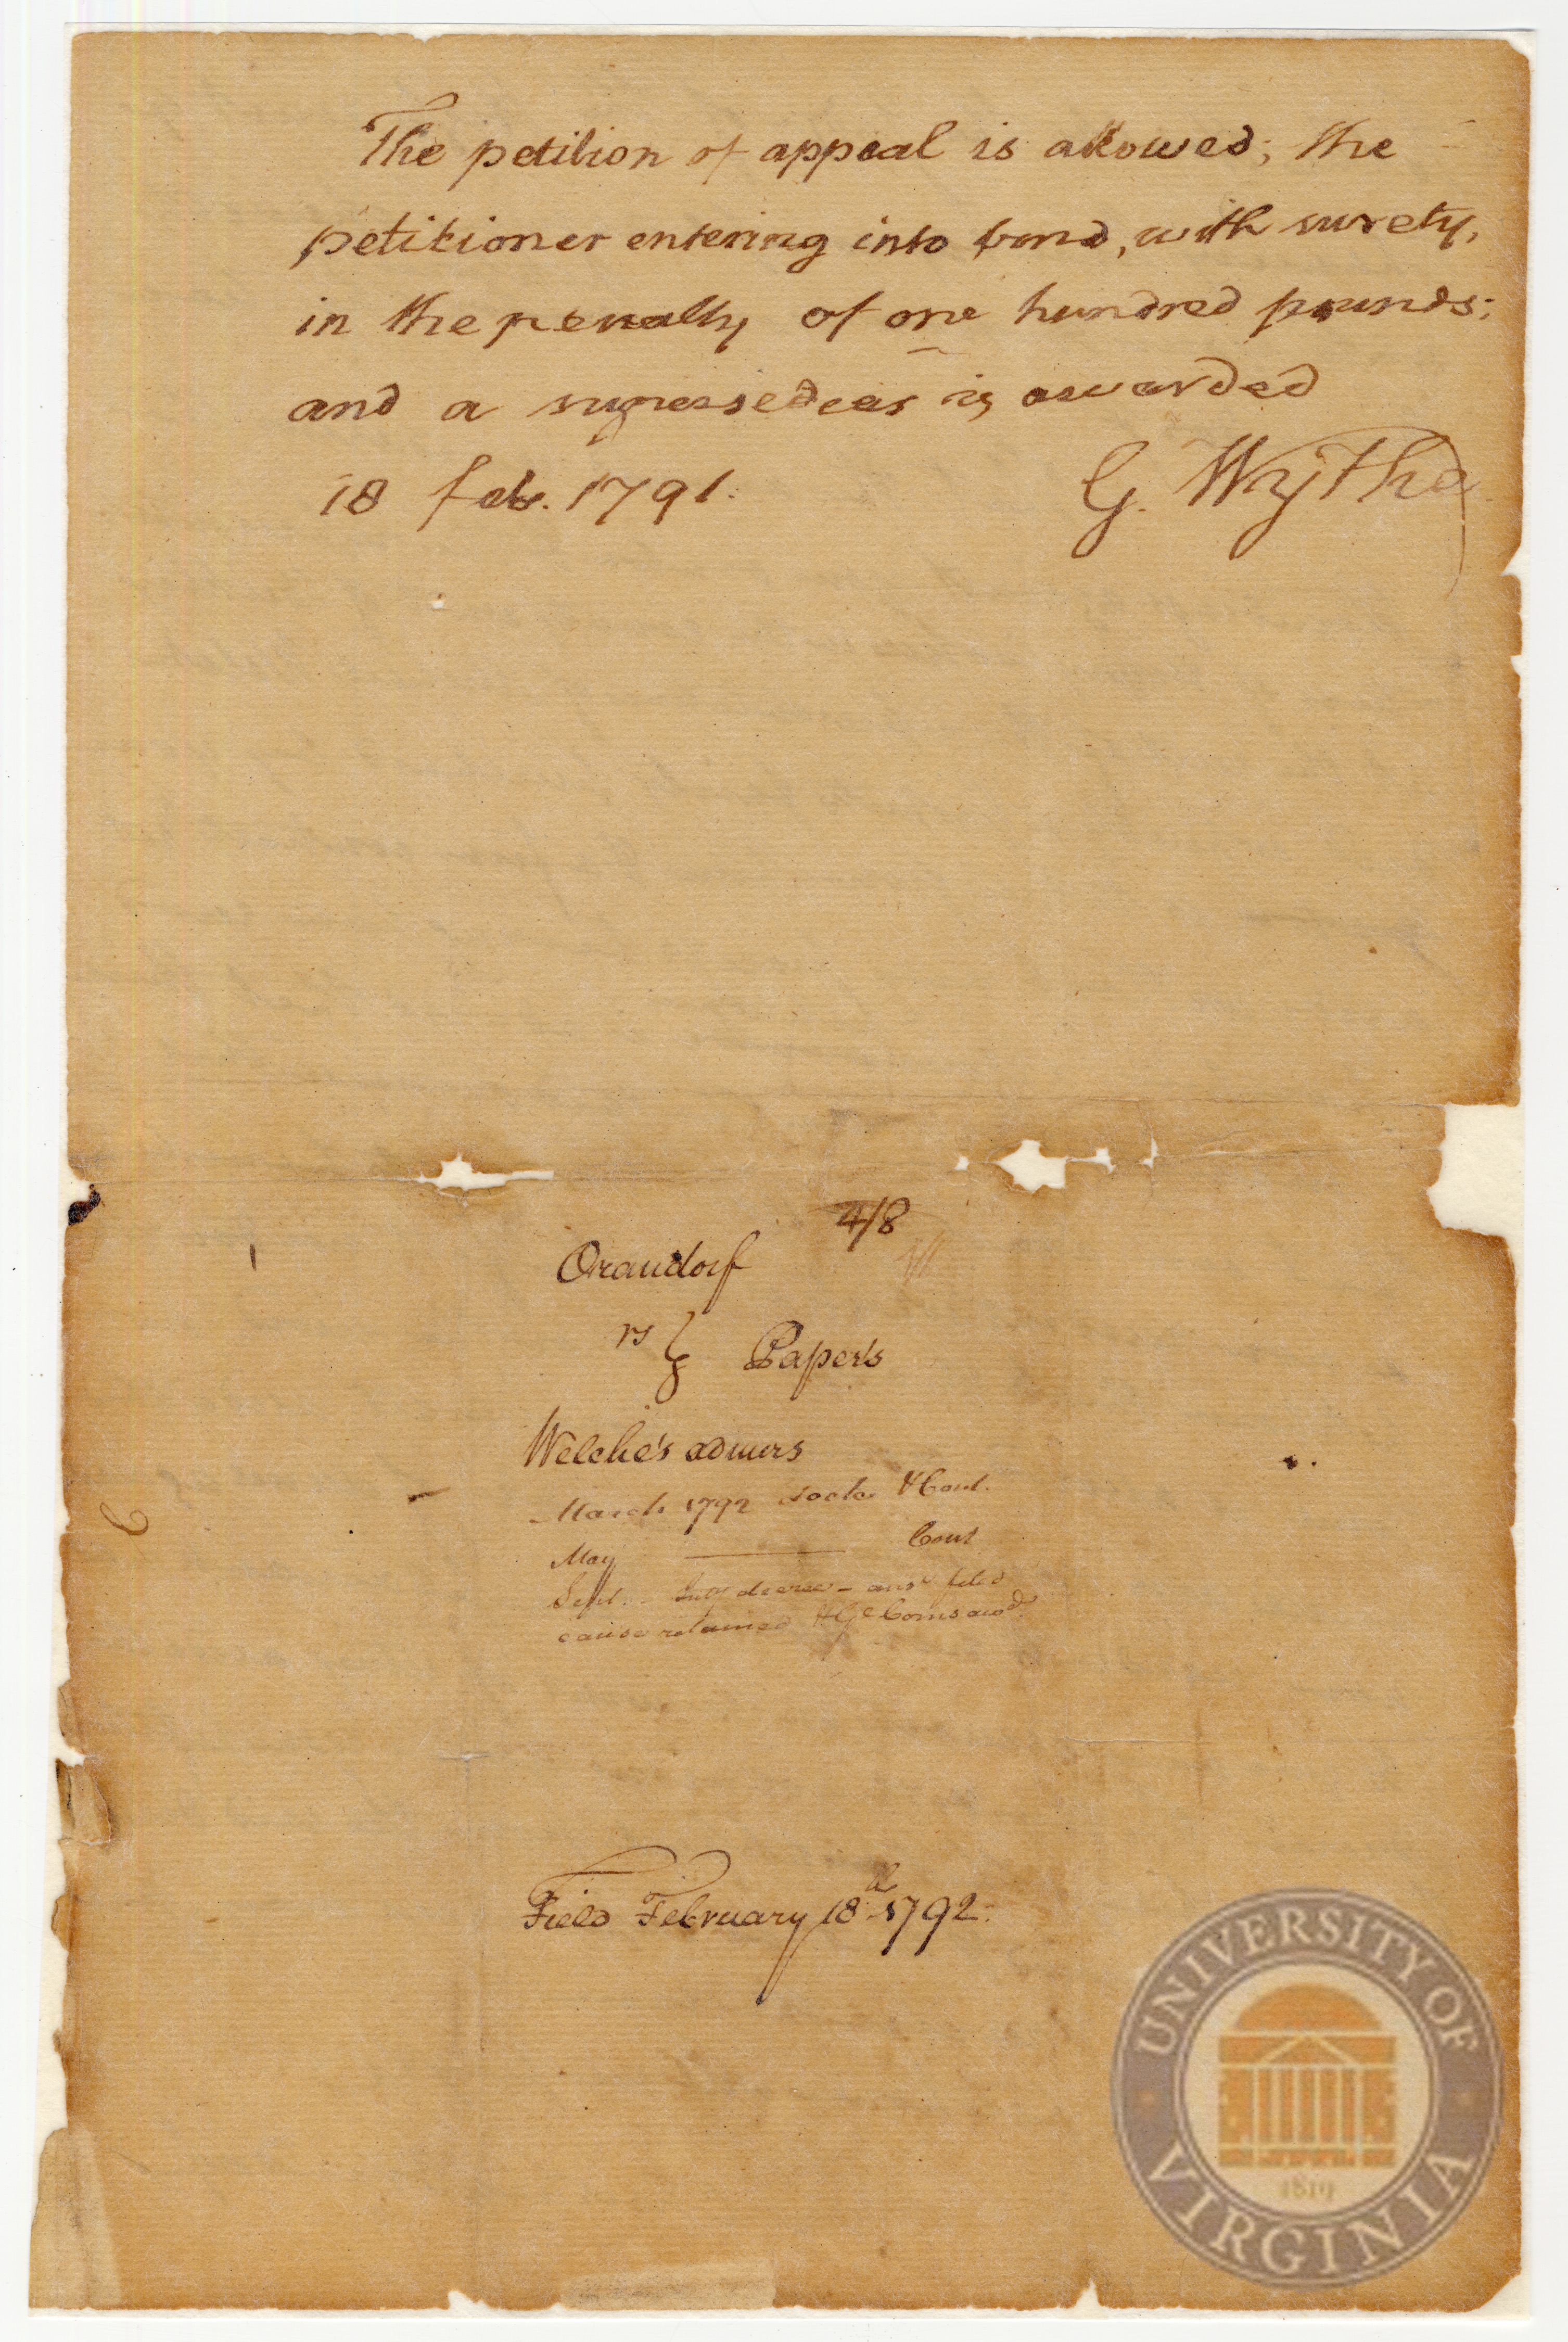 The petition of appeal is allowed; the
petitioner entering into bond, with surety,
in the penalty of one hundred pounds;
and a supersedeas is awarded
18 feb. 1791.
G. Wythe
4/8
Orandorf
vs
Papers
Welche's admrs
March 1792 Cont.
May Cont
Sept. decree – ansr filed
cause retained & Ge Coms awd
Filed February 18th 1792.
6
UNIVERSITY OF
1819
VIRGINIA